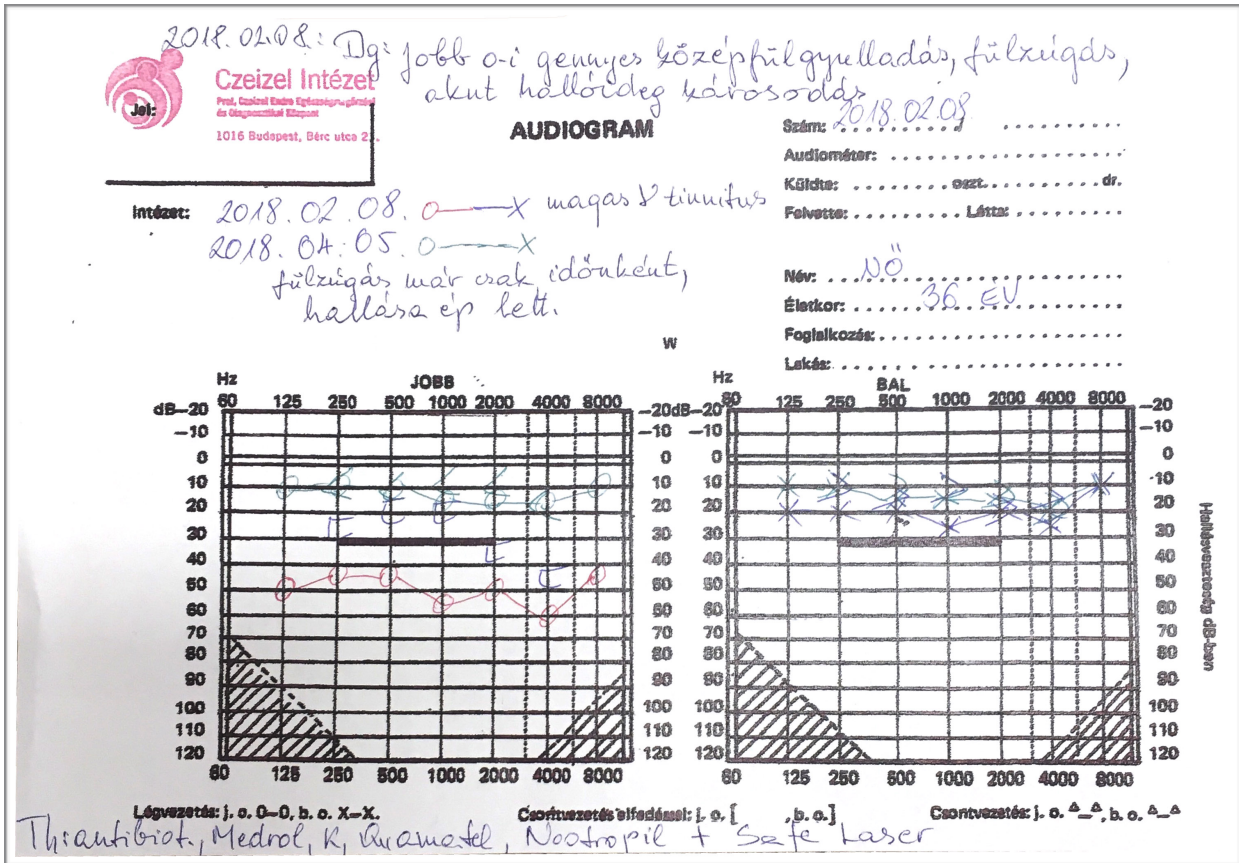 2018.02.08: Dg: jobb o-i gennyes középfülgyulladás, fülzúgás,
akut hallóideg károsodás
Czeizel Intézet
Prof. Czeizel Endre
1016 Budapest, Bérc utca 2
Jel:
AUDIOGRAM
Szám: 2018.02.08
Audiométer:
Küldte: oszt. dr.
Felvette: Látta:
Intézet: 2018.02.08. O—X magas tinnitus
2018.04.05. O—X
fülzúgás már csak időnként,
hallása ép lett.
Név: NŐ
Életkor: 36 ÉV
Foglalkozás:
Lakás:
W
Hz JOBB
60 125 250 500 1000 2000 4000 8000
dB—20 —20
—10 —10
0 0
10 10
20 20
30 30
40 40
50 50
60 60
70 70
80 80
90 90
100 100
110 110
120 120
60 125 250 500 1000 2000 4000 8000
Hz BAL
60 125 250 500 1000 2000 4000 8000
dB—20 —20
—10 —10
0 0
10 10
20 20
30 30
40 40
50 50
60 60
70 70
80 80
90 90
100 100
110 110
120 120
60 125 250 500 1000 2000 4000 8000
Hallásveszteség dB-ben
Légvezetés: j. o. O—O, b. o. X—X.
Csontvezetés elfedéssel: j. o. [ , b. o. ]
Csontvezetés: j. o. △—△, b. o. △—△
Medrol, K, Quamatel, Nootropil + Safe Laser